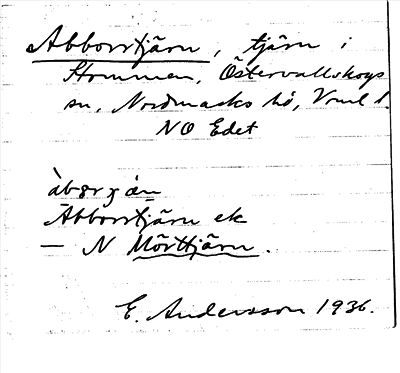 Abborrtjärn, tjärn i
Hommen, Östervallskogs
sn, Nordmarks hd, Vrml l.
NO Edet
Abborrtjärn ek
— N Mörttjärn.
E. Andersson 1936.